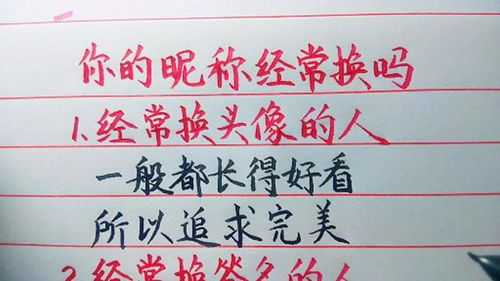 你的昵称经常换吗
1.经常换头像的人
一般都长得好看
所以追求完美
2.经常换签名的人